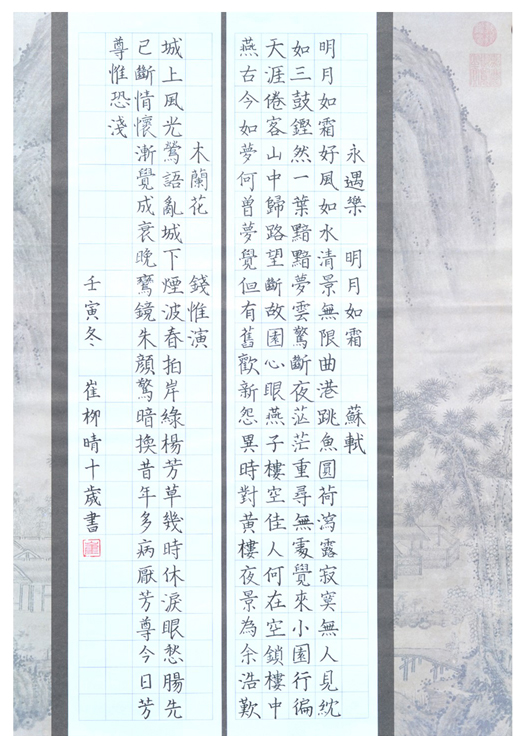 永遇樂 明月如霜 蘇軾
明月如霜好風如水清景無限曲港跳魚圓荷瀉露寂寞無人見紞
如三鼓鏗然一葉黯黯夢雲驚斷夜茫茫重尋無處覺來小園行徧
天涯倦客山中歸路望斷故園心眼燕子樓空佳人何在空鎖樓中
燕古今如夢何曾夢覺但有舊歡新怨異時對黃樓夜景為余浩歎
木蘭花 錢惟演
城上風光鶯語亂城下煙波春拍岸綠楊芳草幾時休淚眼愁腸先
已斷情懷漸覺成衰晚鸞鏡朱顏驚暗換昔年多病厭芳尊今日芳
尊惟恐淺
壬寅冬 崔柳晴十歲書